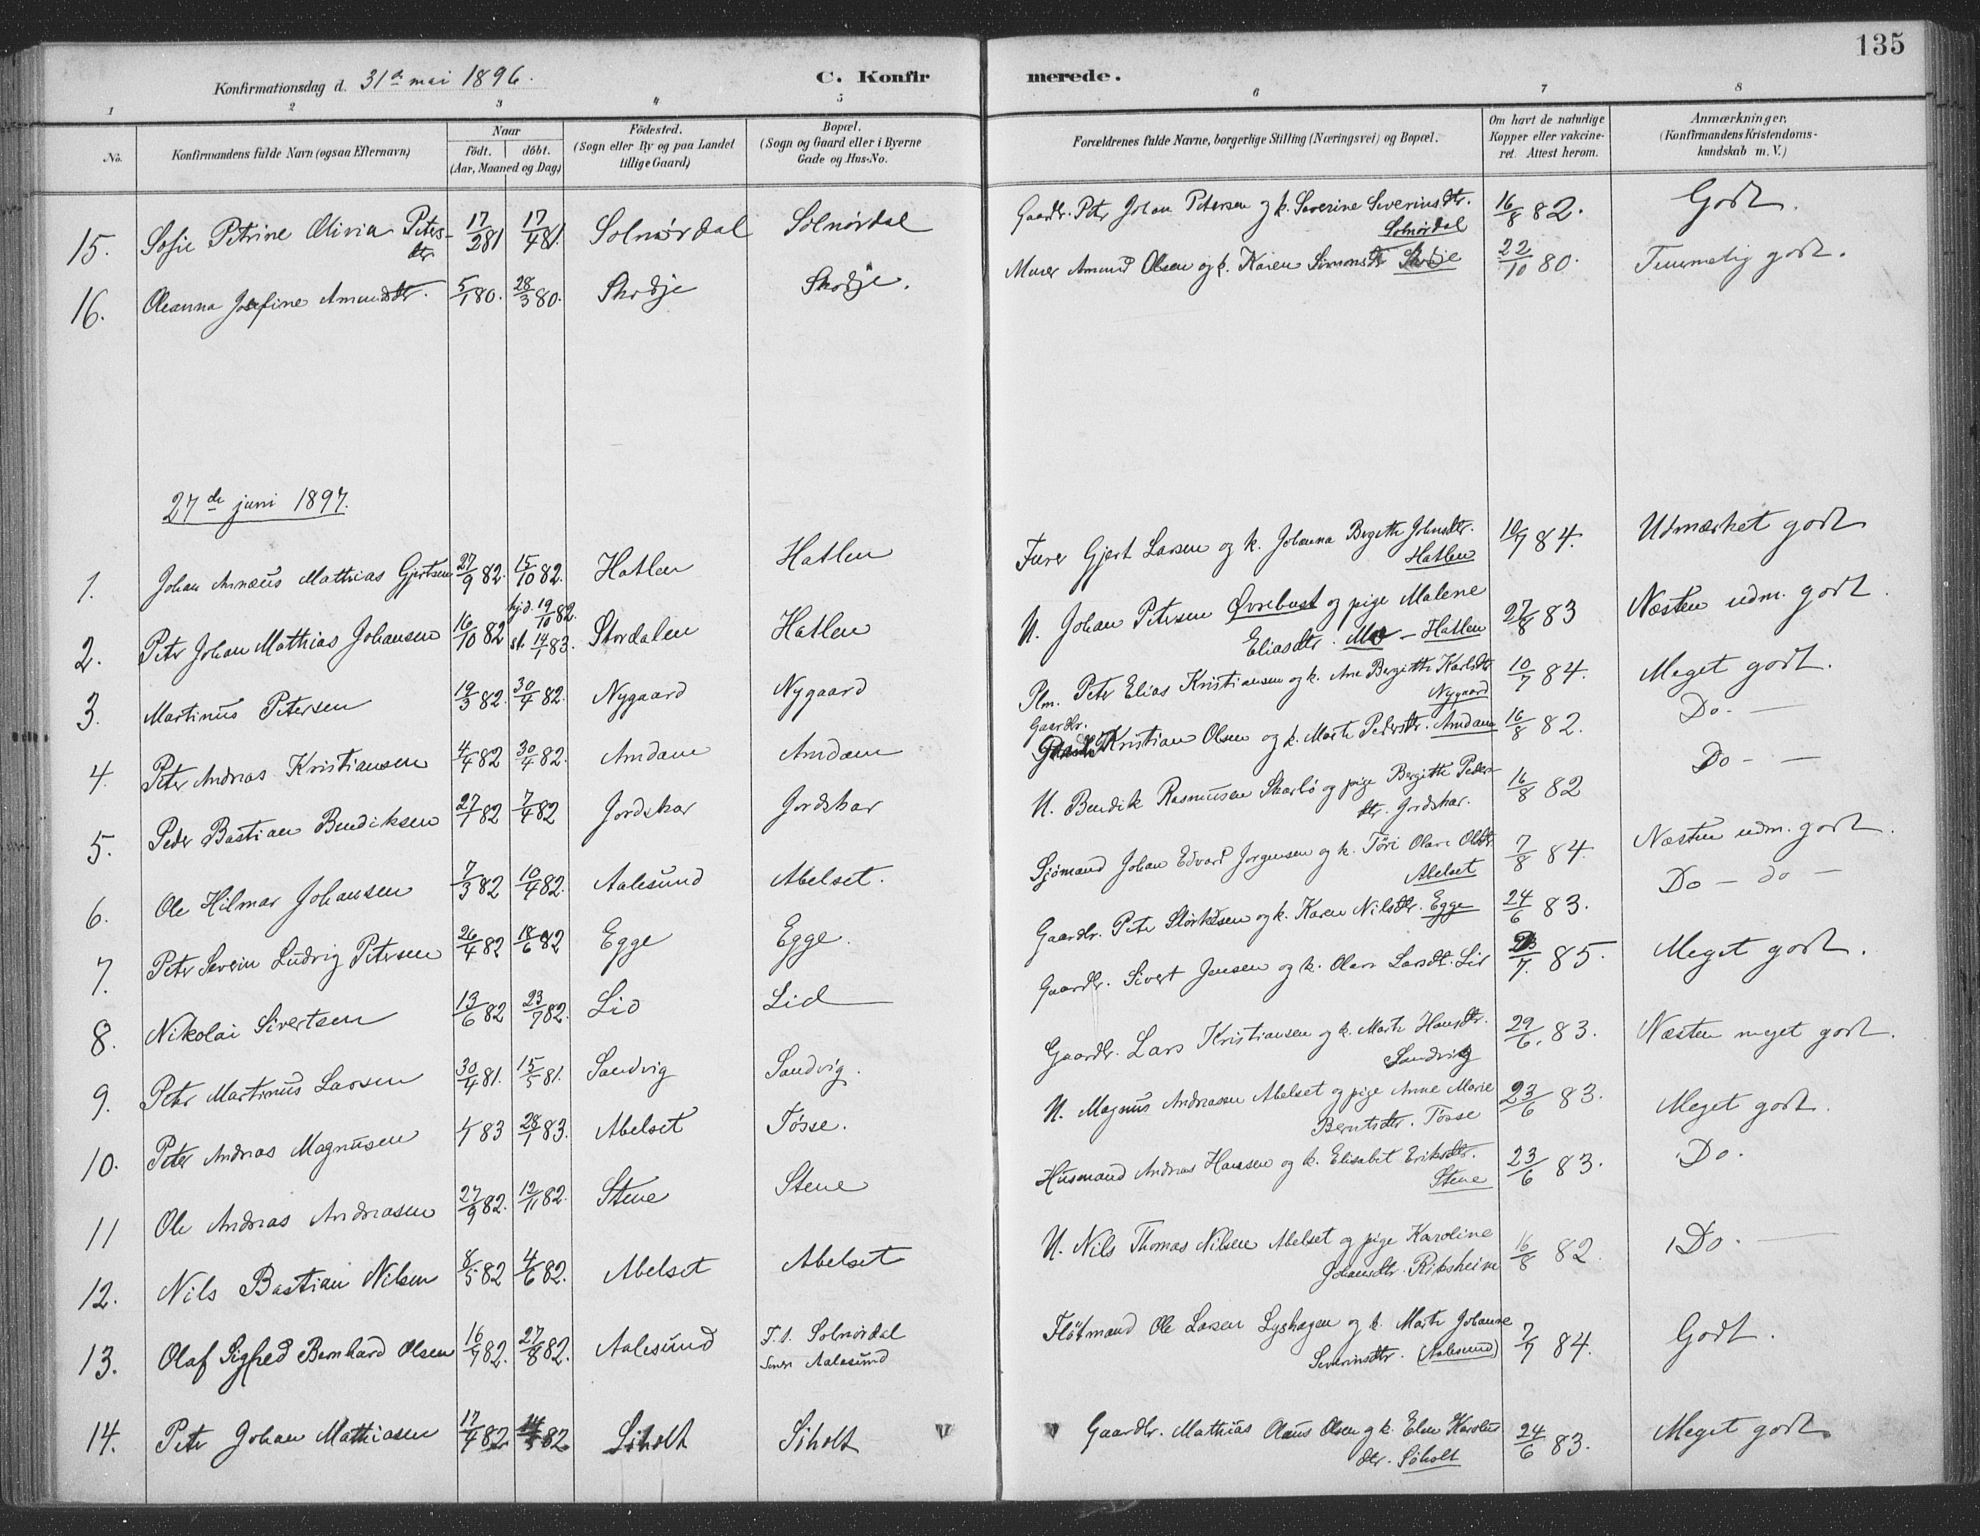 135
Konfirmationsdag d. 31te mai 1896.
C. Konfirmerede.
1 2 3 4 5 6 7 8
No.
Konfirmandens fulde Navn (ogsaa Efternavn)
Naar
födt. döbt.
(Aar, Maaned og Dag)
Födested.
(Sogn eller By og paa Landet
tillige Gaard)
Bopæl.
(Sogn og Gaard eller i Byerne
Gade og Hus-No.
Forældrenes fulde Navne, borgerlige Stilling (Næringsvei) og Bopæl.
Om havt de naturlige
Kopper eller vakcine-
ret. Attest herom.
Anmærkninger,
(Konfirmandens Kristendoms-
kundskab m. V.)
15. Sofie Petrine Olivia Peters- 17/2 81 17/4 81. Solnørdal Solnørdal Gaardbr. Peter Johan Petersen og k. Severine Severinsdtr. 16/8 82. Godt.
dtr. Solnørdal
16. Oleanna Josefine Amundsdtr. 5/1 80. 28/3 80. Skodje Skodje. Murer Amund Olsen og k. Karen Simonsdtr Skodje 22/10 80. Temmelig godt.
27de juni 1897.
1. Johan Arnæus Mathias Gjertsen 27/9 82. 15/10 82. Hatlen Hatlen Furer Gjert Larsen og k. Johanna Bergitte Johnsdtr. 10/7 84. Udmærket godt
Hatlen
2. Peter Johan Mathias Johansen 16/10 82 hjd. 19/10 82. st. 14/1 83. Stordalen Hatlen U. Johan Petersen Øvrebust og pige Malene 27/8 83 Næsten udm. godt.
Eliasdtr. Mo - Hatlen
3. Martinus Petersen 19/3 82. 30/4 82. Nygaard Nygaard Plm. Peter Elias Kristiansen og k. Ane Bergitte Karlsdtr 10/7 84. Meget godt.
Nygaard
4. Peter Andreas Kristiansen 4/4 82 30/4 82. Amdam Amdam Gaardbr. Kristian Olsen og k. Marte Pedersdtr. Amdam 16/8 82. Do. -
5. Peder Bastian Bendiksen 27/1 82 7/4 82 Jordskar Jordskar U. Bendik Rasmussen Skarbø og pige Bergitte Peders- 16/8 82 Do - -
dtr. Jordskar.
6. Ole Hilmar Johansen 7/3 82 10/4 82. Aalesund Abelset. Sjömand Johan Edvard Jorgensen og k. Töri Olave Olsdtr 7/8 84. Næsten udm. godt.
Abelset
7. Peter Severin Ludvig Petersen 26/4 82 18/6 82 Egge Egge. Gaardbr. Peter Størkesen og k. Karen Nilsdtr. Egge 24/6 83. Do - do -
8. Nikolai Sivertsen 13/6 82 23/7 82. Lid Lid Gaardbr. Sivert Jensen og k. Olave Larsdt. Lid 23/7. 85. Meget godt.
9. Peter Martinus Larsen 30/4 81. 15/5 81. Sandvig Sandvig. Gaardbr. Lars Kristiansen og k. Marte Hansdtr. 29/6. 83. Næsten meget godt.
Sandvig
10. Peter Andreas Magnussen 4/1 83 28/1 83. Abelset Tösse. U. Magnus Andreassen Abelset og pige Anne Marie 23/6 83. Meget godt.
Berntsdtr. Tösse
11 Ole Andreas Andreasen 27/9 82. 12/11 82. Stene Stene Husmand Andreas Hansen og k. Elisabet Eriksdtr. 23/6 83. Do.
Stene
12. Nils Bastian Nilsen 8/5 82 4/6 82. Abelset Abelset U. Nils Thomas Nilsen Abelset og pige Karoline 16/8 82. Do.
Johansdtr. Ribsheim
13. Olaf Sigfred Bernhard Olsen 16/7 82. 27/8 82. Aalesund F. t. Solnørdal Flötmand Ole Larsen Lyshagen og k. Marte Johanne 7/7 84. Godt.
Senere Aalesund Severinsdtr. (Aalesund)
14. Peter Johan Mathiasen 17/4 82 82 Söholt Söholt Gaardbr. Mathias Olaus Olsen og k. Elen Karolus 24/6 83. Meget godt.
dtr. Søholt